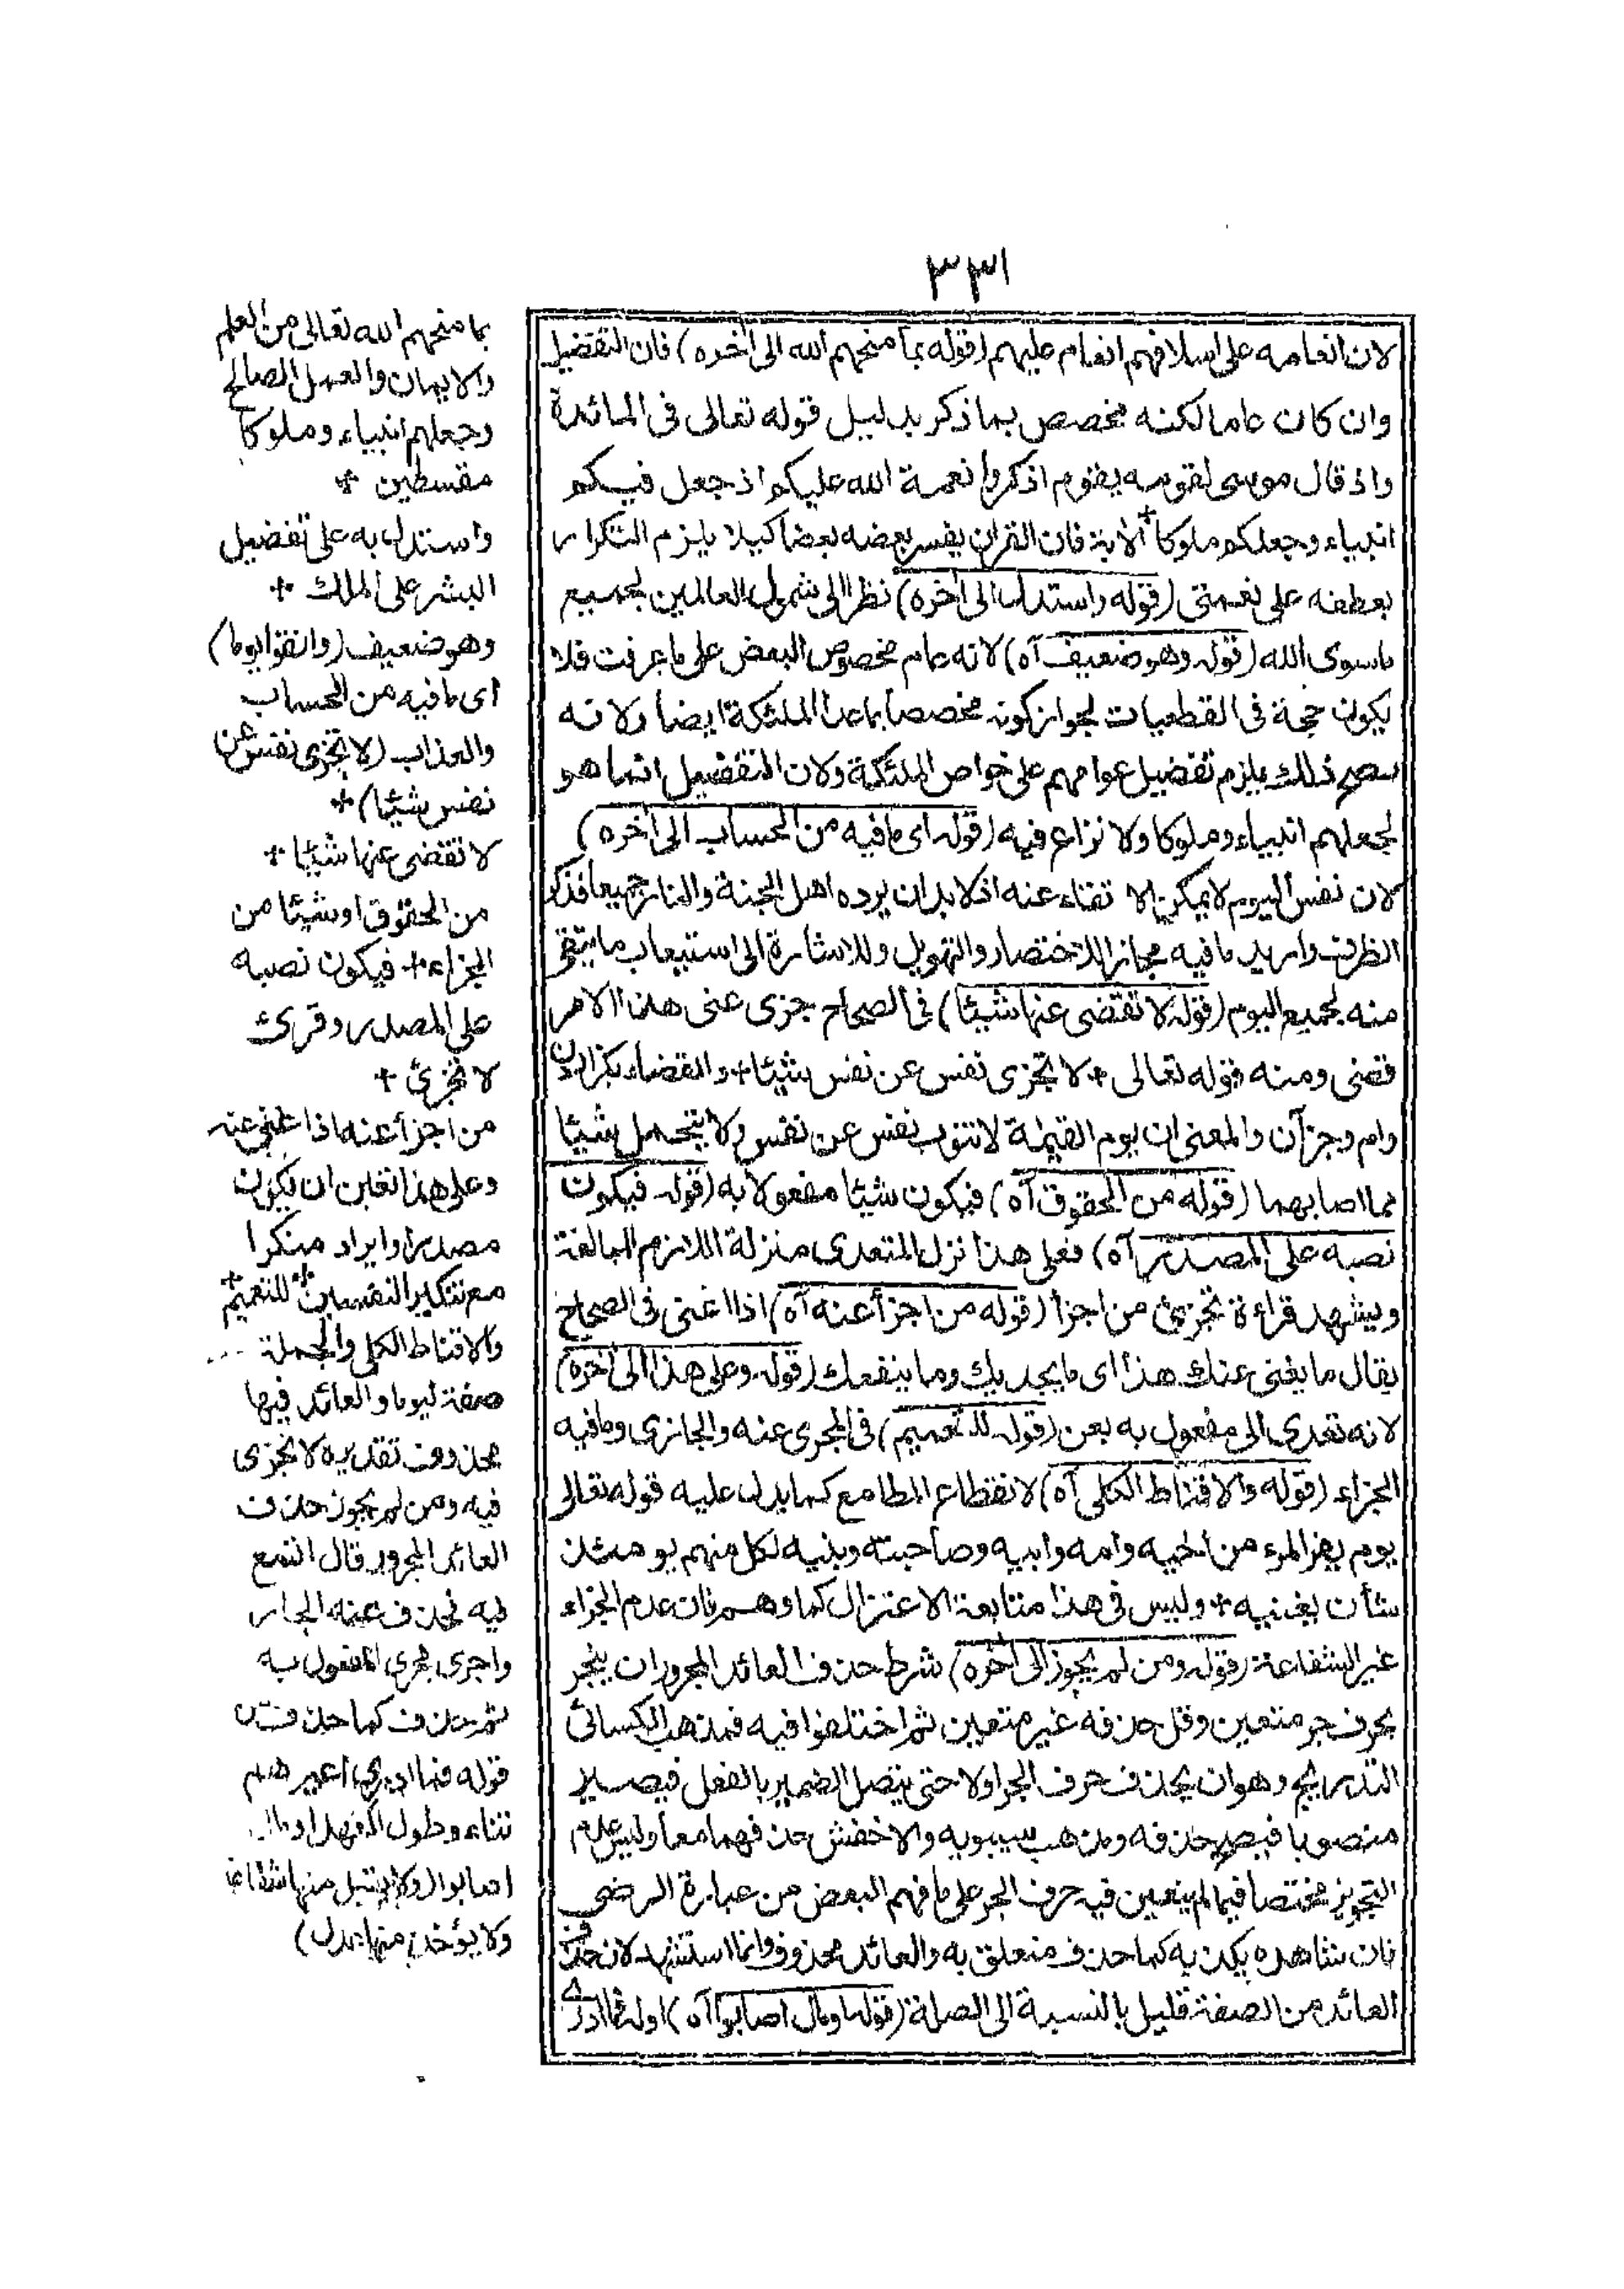 ٣٣١
لان انعامه على اسلافهم انعام عليهم (قوله بما منحهم الله الى آخره) فان التفضيل
وان كان عاما لكنه مخصص بما ذكر بدليل قوله تعالى فى المائدة
واذ قال موسى لقومه يقوم اذكروا نعمة الله عليكم اذ جعل فيكم
انبياء وجعلكم ملوكا + الاية فان القران يفسر بعضه بعضا كيلا يلزم التكرار
بعطفه على نعمتى (قوله واستدل الى آخره) نظرا الى شمول العالمين لجميع
ماسوى الله (قوله وهو ضعيف آه) لانه عام مخصوص البعض على ما عرفت فلا
يكون حجة فى القطعيات لجواز كونه مخصصا بما عدا الملئكة ايضا ولانه
ذلك يلزم تفضيل عوامهم على خواص الملئكة ولان التفضيل انما هو
لجعلهم انبياء وملوكا ولا نزاع فيه (قوله اى مافيه من الحساب الى آخره)
لان نفس اليوم لا يمكن الا تقاء عنه اذ لا بد ان يرده اهل الجنة والنار جميعا فذكر
الظرف واريد مافيه مجازا للاختصار والتهويل وللاشارة الى استيعاب ما يتقى
منه لجميع اليوم (قوله لا تقضى عنها شيئا) فى الصحاح جزى عنى هذا الامر
قضى ومنه قوله تعالى + لا تجزى نفس عن نفس شيئا + والقضاء
وام وجزآن والمعنى ان يوم القيمة لا تنوب نفس عن نفس ولا يتحمل شيئا
مما اصابهما (قوله من الحقوق آه) فيكون شيئا مفعولا به (قوله فيكون
نصبه على المصدر آه) فعلى هذا نزل المتعدى منزلة اللازم للمبالغة
ويشهد قراءة تجزئ من اجزأ (قوله من اجزأ عنه آه) اذا اغنى فى الصحاح
يقال ما يغنى عنك هذا اى ما يجديك وما ينفعك (قوله وعلى هذا الى آخره)
لانه تعدى الى مفعول به بعن (قوله للتعميم) فى المجزى عنه والجازى ومافيه
الجزاء (قوله والاقناط الكلى آه) لانقطاع المطامع كما يدل عليه قوله تعالى
يوم يفر المرء من اخيه وامه وابيه وصاحبته وبنيه لكل منهم يومئذ
شأن يغنيه + وليس فى هذا متابعة الاعتزال كما وهم فان عدم الجزاء
غير الشفاعة (قوله ومن لم يجوز الى آخره) شرط حذف العائد المجرور ان ينجر
بحرف جر متعين وقل حذفه غير متعين ثم اختلفوا فيه فمذهب الكسائى
التدريج وهو ان يحذف حرف الجر اولا حتى يتصل الضمير بالفعل فيصير
منصوبا فيصح حذفه ومذهب سيبويه والاخفش حذفهما معا وليس عدم
التجويز مختصا فيما لم يتعين فيه حرف الجر على ما فهم البعض من عبارة الرضى
فان شاهده يكذبه كما حذف متعلق به والعائد محذوف وانما استشهد لان حذف
العائد من الصفة قليل بالنسبة الى الصلة (قوله او مال اصابوا آه) اوله فما ادرى
بما منحهم الله تعالى من العلم
والايمان والعمل الصالح
وجعلهم انبياء وملوكا
مقسطين +
واستدل به على تفضيل
البشر على الملك +
وهو ضعيف (واتقوا يوما)
اى مافيه من الحساب
والعذاب (لا تجزى نفس عن
نفس شيئا) +
لا تقضى عنها شيئا +
من الحقوق او شيئا من
الجزاء + فيكون نصبه
على المصدر وقرئ
لا تجزئ +
من اجزأ عنه اذا اغنى عنه
وعلى هذا تعين ان يكون
مصدرا وايراده منكرا
مع تنكير النفسين + للتعميم +
والاقناط الكلى والجملة
صفة ليوما والعائد فيها
محذوف تقديره لا تجزى
فيه ومن لم يجوز حذف
العائد المجرور قال اتسع
فيه فحذف عنه الجار
واجرى مجرى المفعول به
ثم حذف كما حذف من
قوله فما ادرى اغيرهم
تناء وطول العهد او مال
اصابوا (ولا يقبل منها شفاعة
ولا يؤخذ منها عدل)